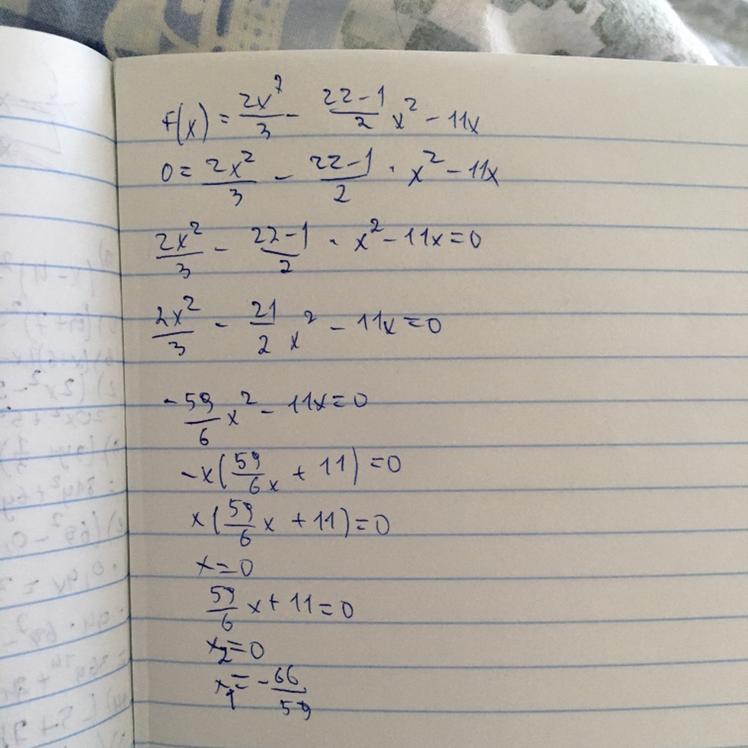 f(x) = 2x²/3 - 22-1/2 x² - 11x
0 = 2x²/3 - 22-1/2 · x² - 11x
2x²/3 - 22-1/2 · x² - 11x = 0
2x²/3 - 21/2 x² - 11x = 0
-59/6 x² - 11x = 0
-x(59/6x + 11) = 0
x(59/6 x + 11) = 0
x = 0
59/6 x + 11 = 0
x₂ = 0
x₁ = -66/59